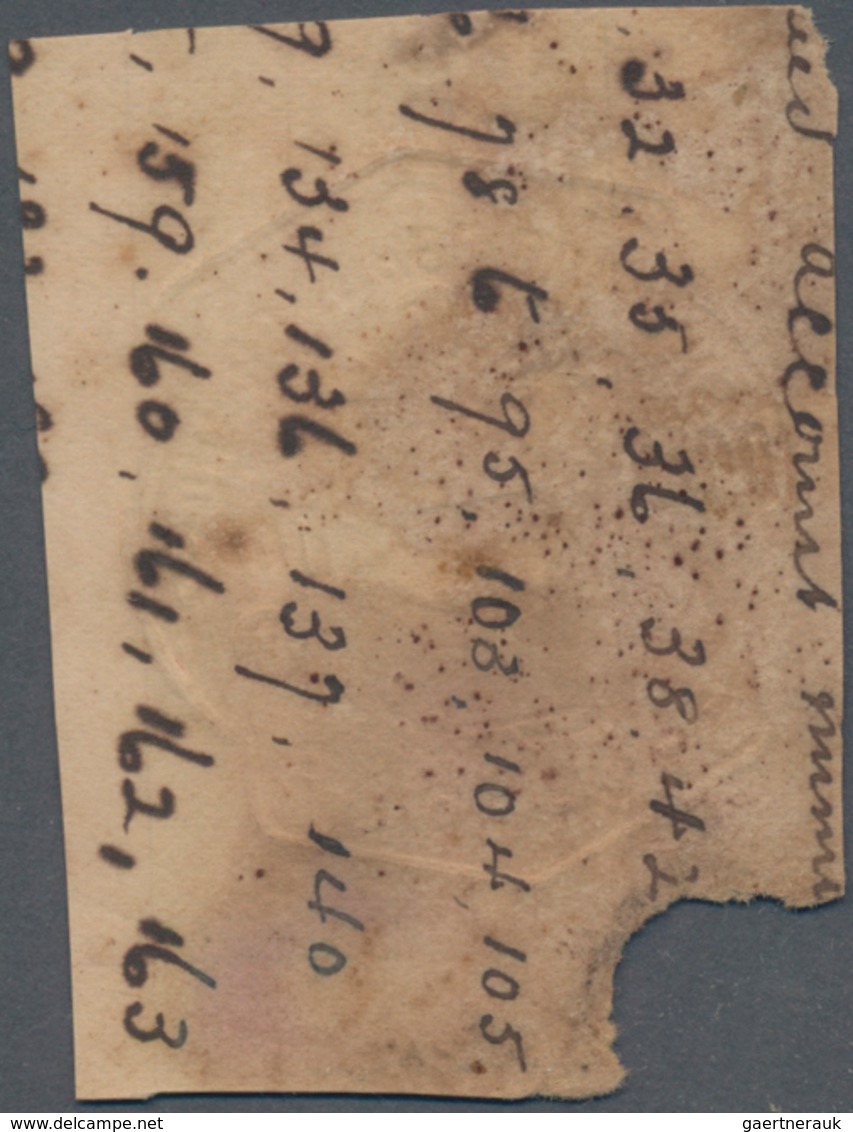 account
32, 35, 36, 38, 42
78 t 95, 103, 104, 105
134, 136, 137, 140
159. 160, 161, 162, 163
gaertnerauk